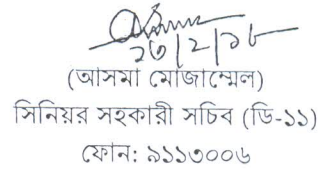 ২৩/২/১৮
(আসমা মোজাম্মেল)
সিনিয়র সহকারী সচিব (ডি-১১)
ফোন: ৯১১৩০০৬